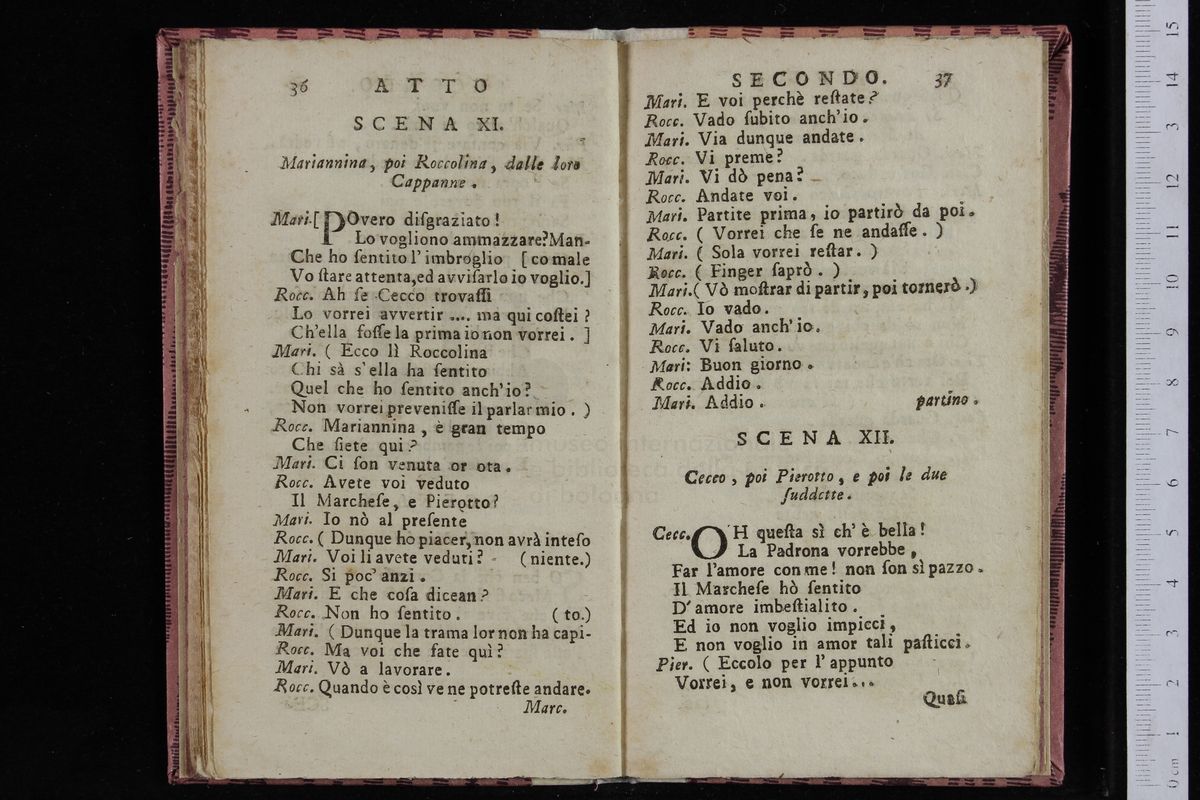 36 ATTO
SCENA XI.
Mariannina, poi Roccolina, dalle loro
Cappanne.
Mari.[ POvero diſgraziato!
Lo vogliono ammazzare?Man-
Che ho ſentito l'imbroglio [co male
Vo ſtare attenta,ed avviſarlo io voglio.]
Rocc. Ah ſe Cecco trovaſſi
Lo vorrei avvertir .... ma qui coſtei?
Ch'ella foſſe la prima io non vorrei. ]
Mari. ( Ecco lì Roccolina
Chi sà s'ella ha ſentito
Quel che ho ſentito anch'io?
Non vorrei preveniſſe il parlar mio. )
Rocc. Mariannina, è gran tempo
Che ſiete qui?
Mari. Ci ſon venuta or ota.
Rocc. Avete voi veduto
Il Marcheſe, e Pierotto?
Mari. Io nò al preſente
Rocc. ( Dunque ho piacer, non avrà inteſo
Mari. Voi li avete veduti? (niente.)
Rocc. Si poc' anzi.
Mari. E che coſa dicean?
Rocc. Non ho ſentito. (to.)
Mari. ( Dunque la trama lor non ha capi-
Rocc. Ma voi che fate quì?
Mari. Vò a lavorare.
Rocc. Quando è così ve ne potreſte andare.
Marc.
SECONDO. 37
Mari. E voi perchè reſtate?
Rocc. Vado ſubito anch'io.
Mari. Via dunque andate.
Rocc. Vi preme?
Mari. Vi dò pena?
Rocc. Andate voi.
Mari. Partite prima, io partirò da poi.
Rocc. ( Vorrei che ſe ne andaſſe. )
Mari. ( Sola vorrei reſtar. )
Rocc. ( Finger ſaprò. )
Mari.( Vò moſtrar di partir, poi tornerò.)
Rocc. Io vado.
Mari. Vado anch'io.
Rocc. Vi ſaluto.
Mari: Buon giorno.
Rocc. Addio.
Mari. Addio. partino.
SCENA XII.
Cecco, poi Pierotto, e poi le due
ſuddette.
Cecc. OH queſta sì ch'è bella!
La Padrona vorrebbe,
Far l'amore con me! non ſon sì pazzo.
Il Marcheſe hò ſentito
D'amore imbeſtialito.
Ed io non voglio impicci,
E non voglio in amor tali paſticci.
Pier. ( Eccolo per l'appunto
Vorrei, e non vorrei...
Quaſi
museo internazio
biblioteca
di bologna
0 cm 1 2 3 4 5 6 7 8 9 10 11 12 13 14 15